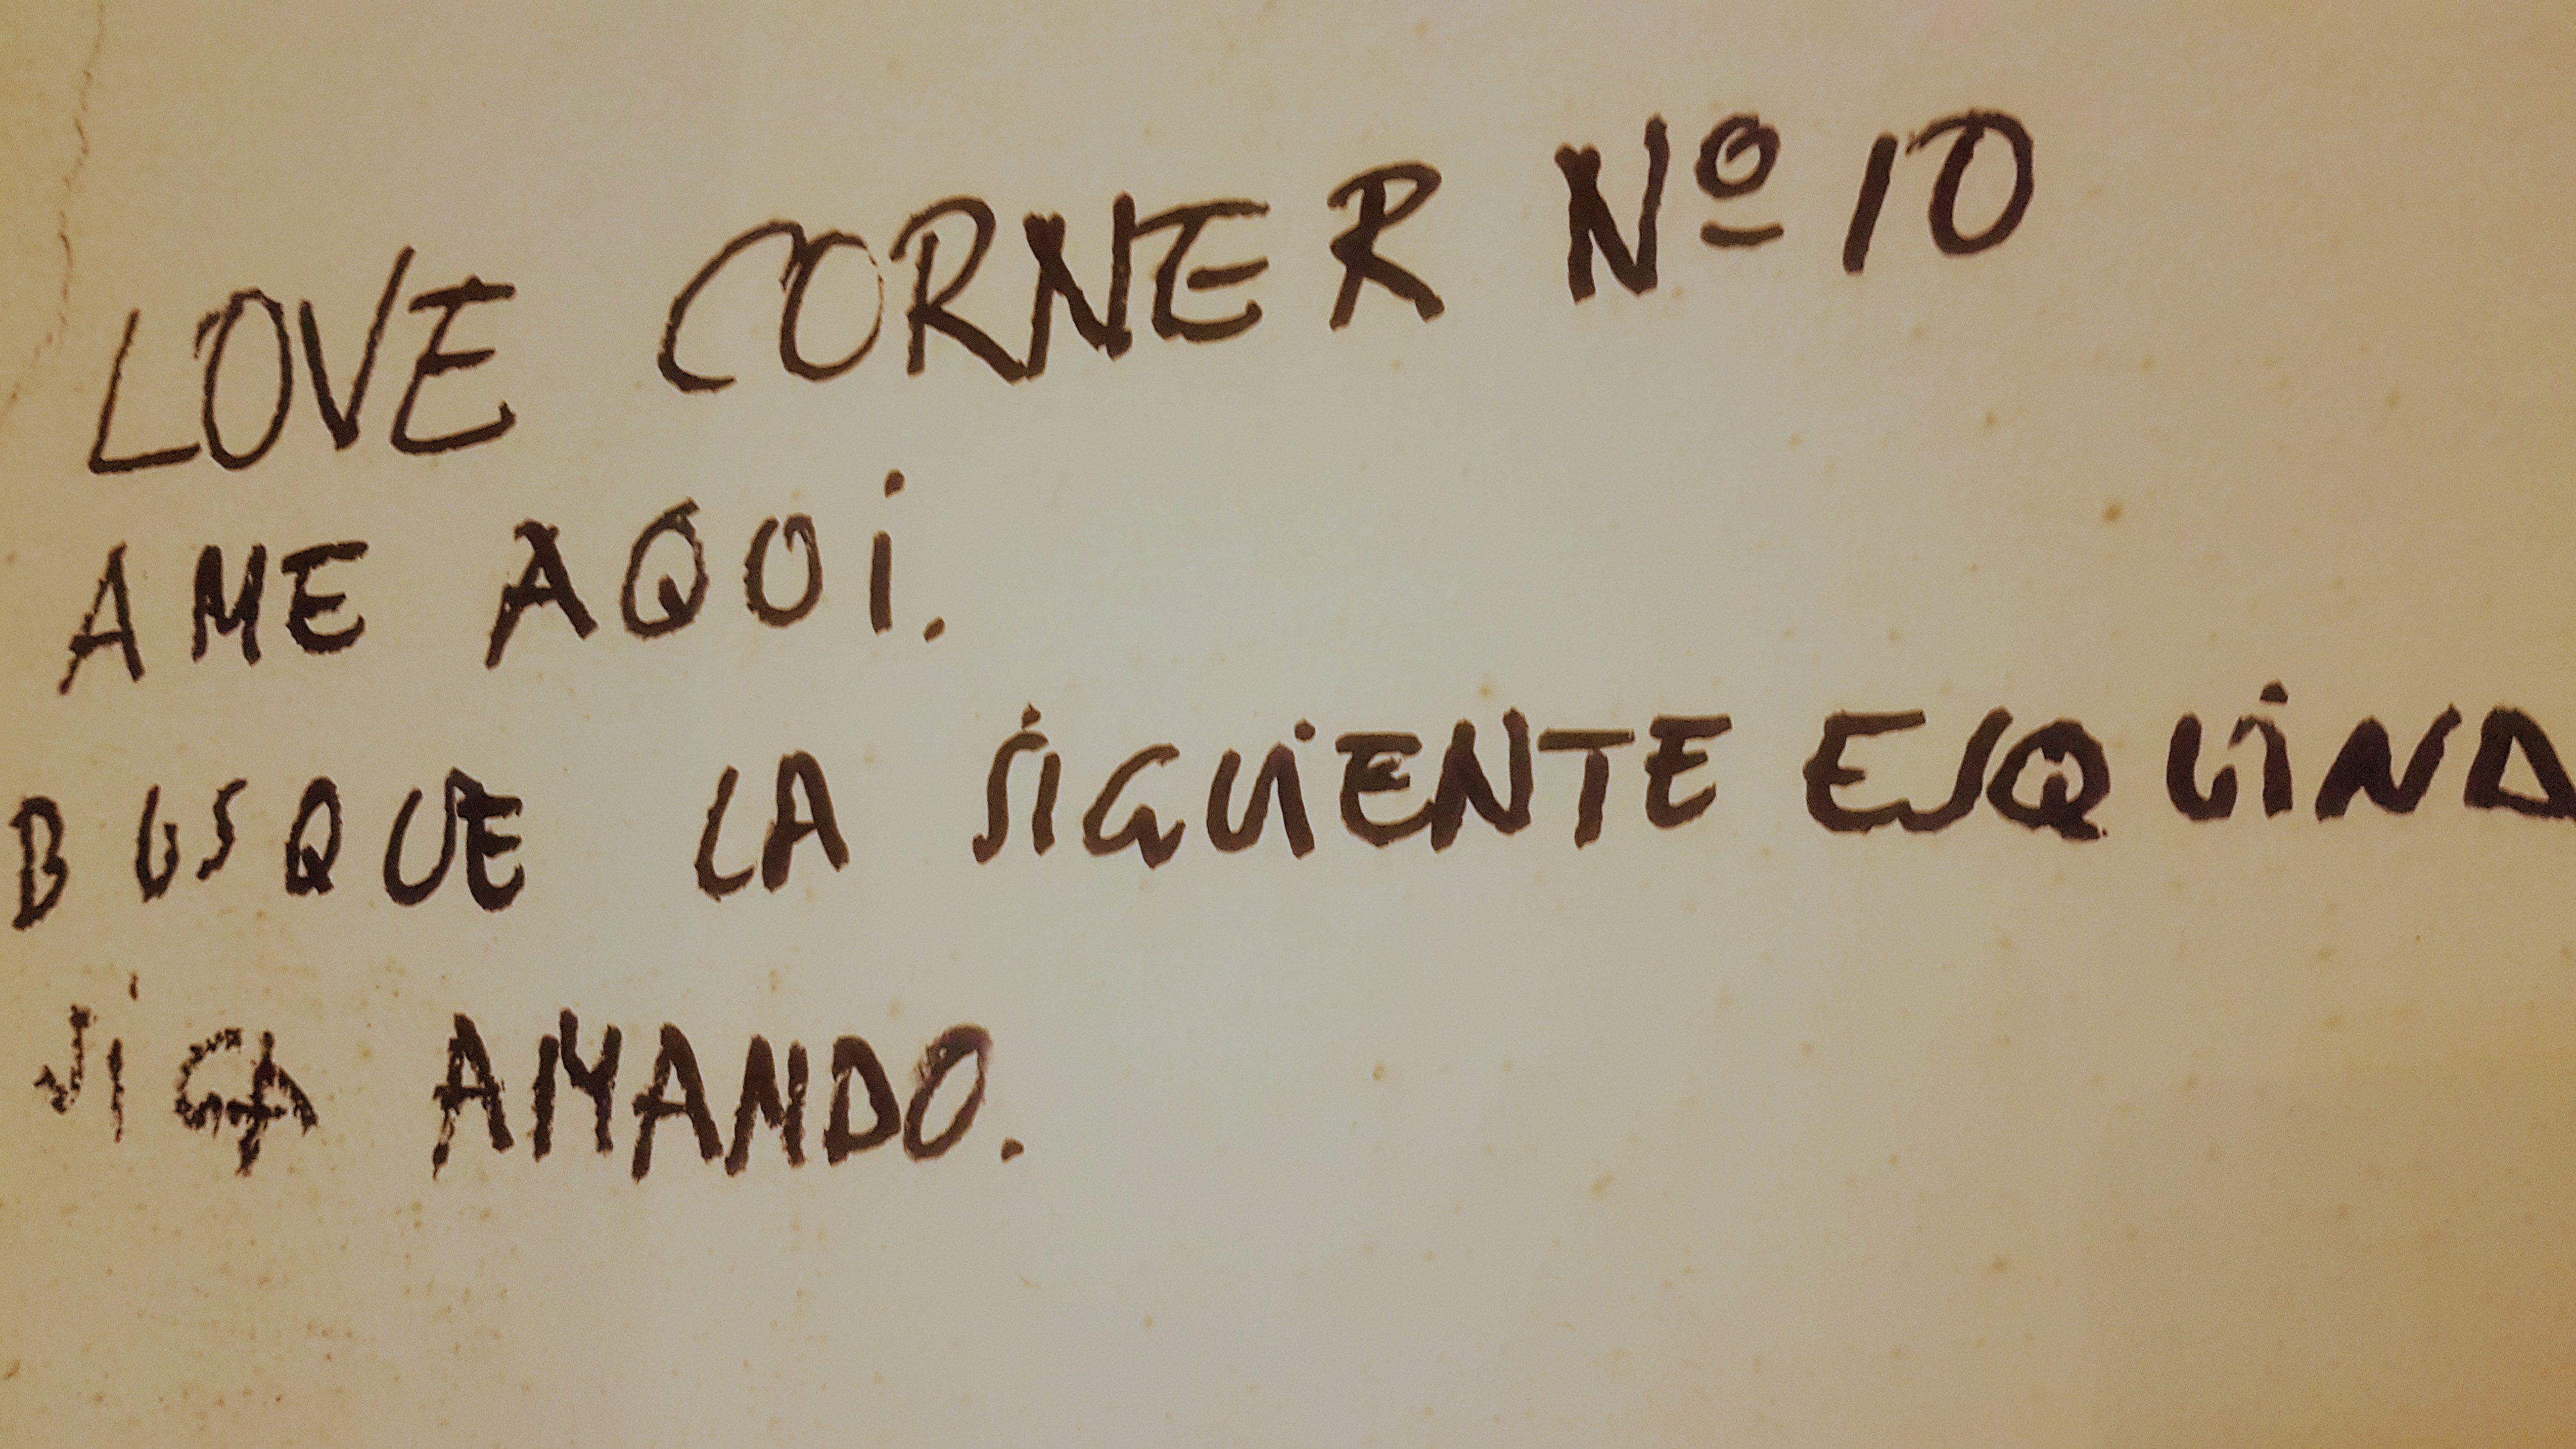 LOVE CORNER Nº 10
AME AQUI.
BUSQUE LA SIGUIENTE ESQUINA
SIGA AMANDO.